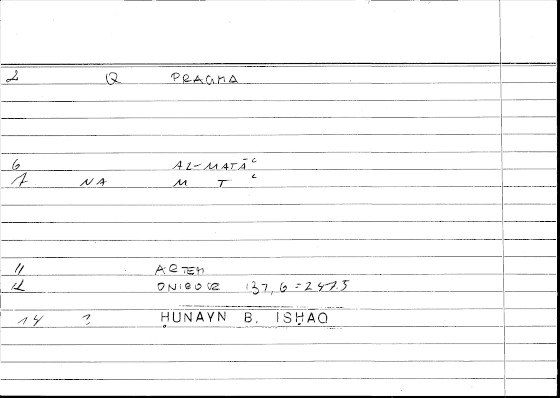 2 Q PRAGMA
6 AL-MATĀʿ
7 NA M T ʿ
11 ARTEM
12 ONIROCR 137,6 = 247.5
14 ? ḤUNAYN B. ISḤAQ